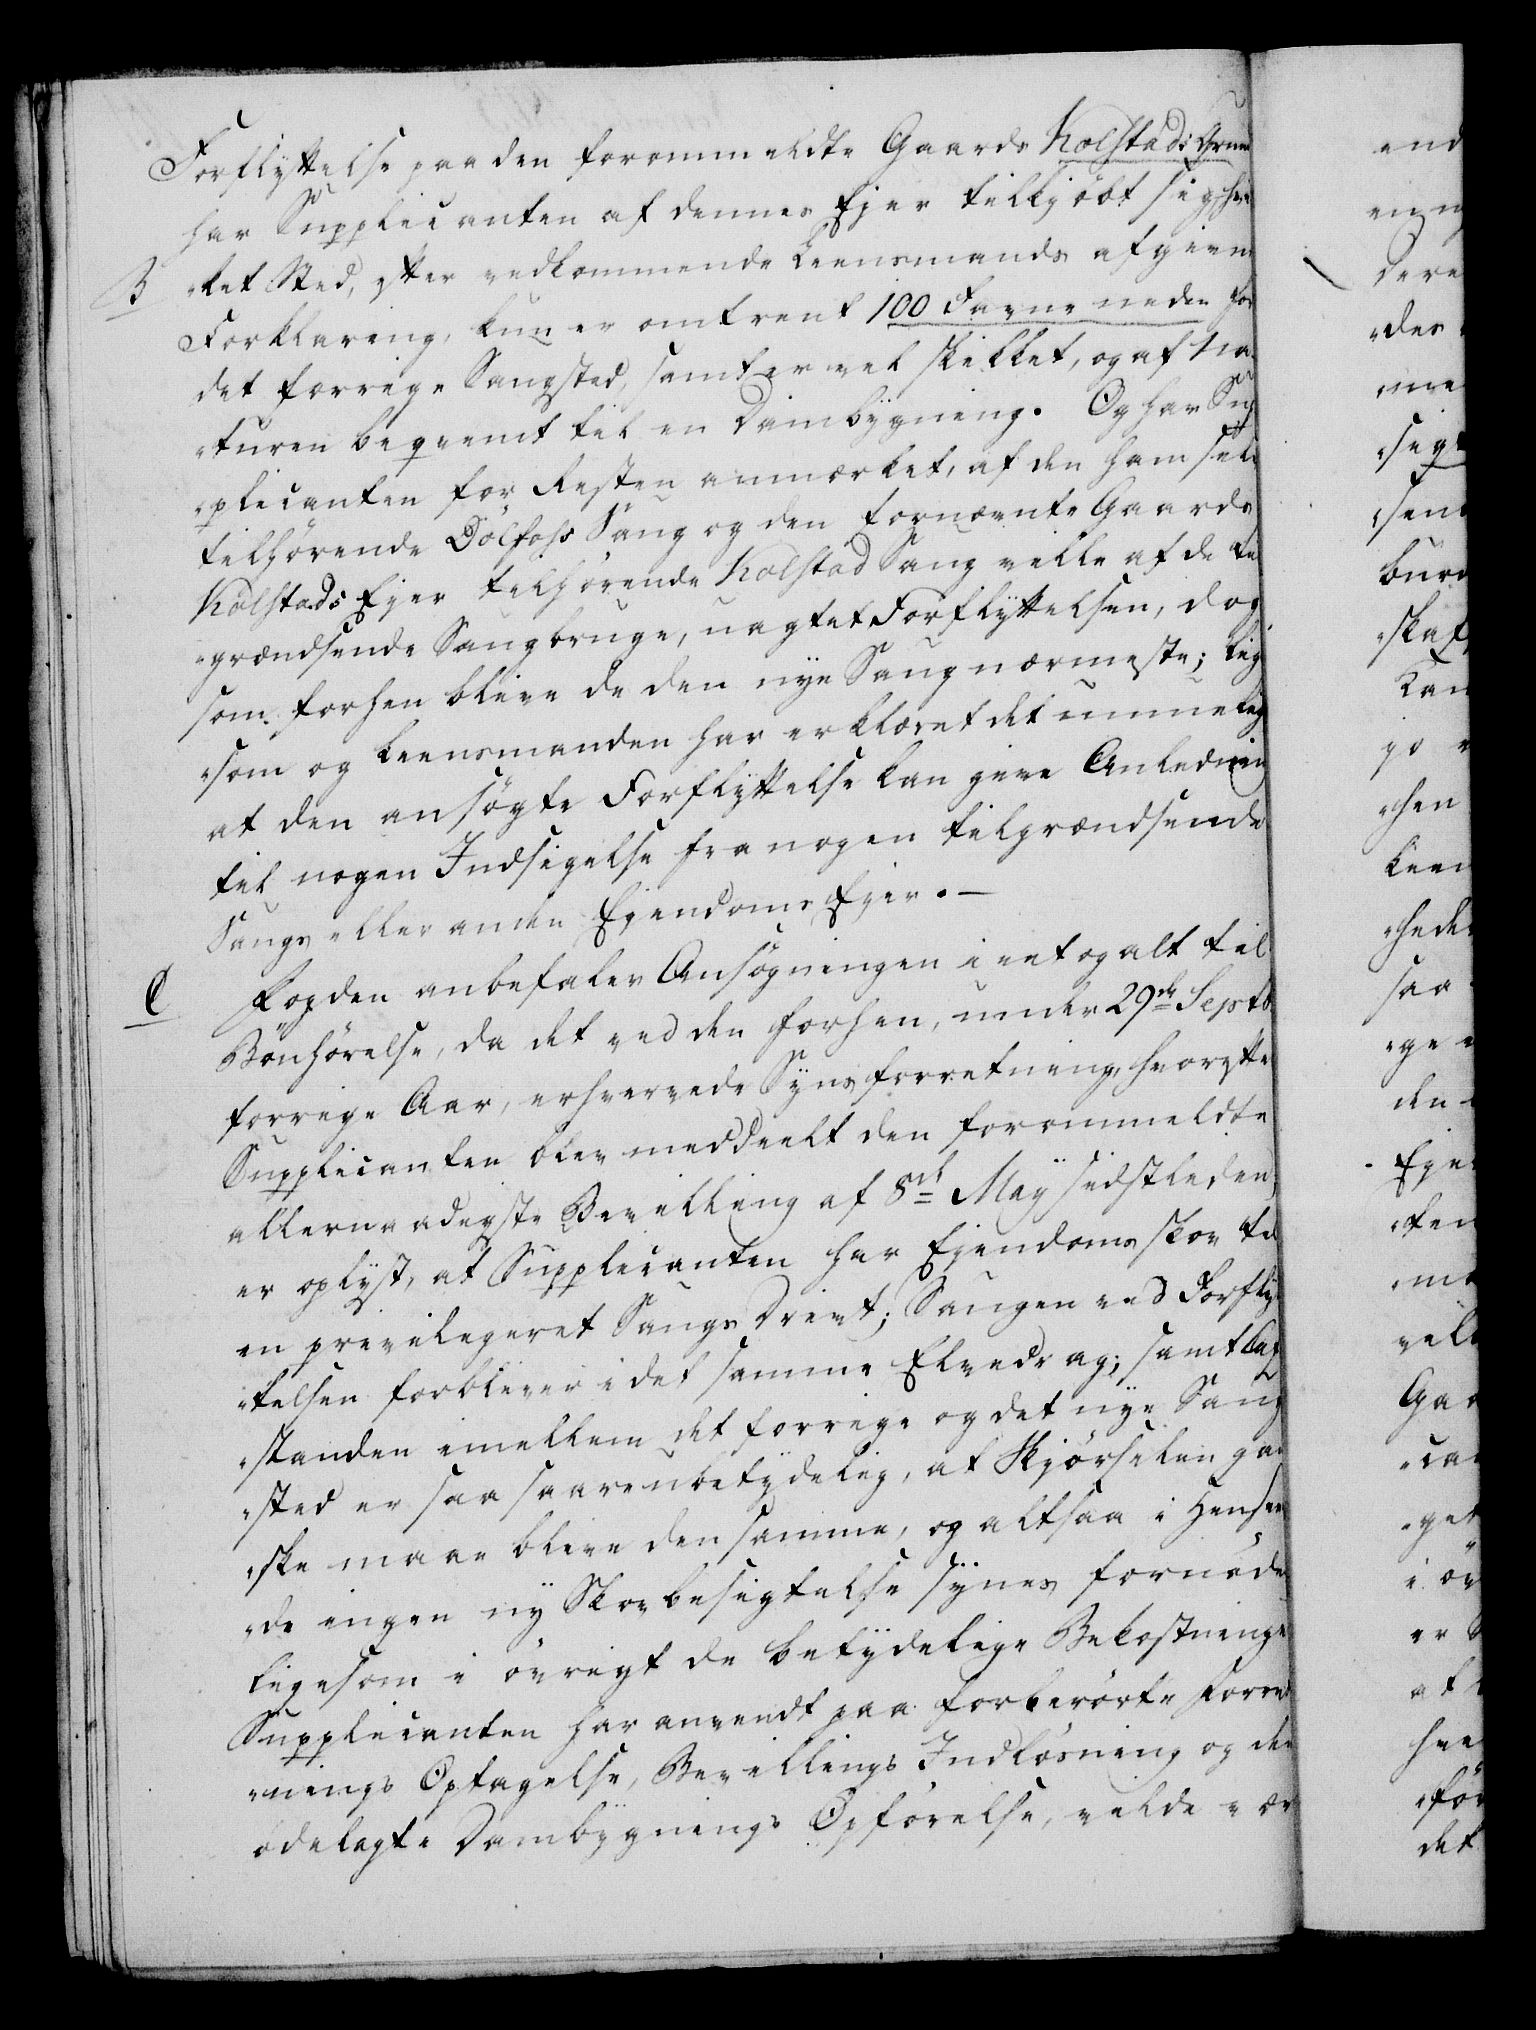 Forflyttelse paa den forommeldte Gaards Kolstads Grund
har Supplicanten af dennes Ejer tilkjøbt sig, hvil
B „ket Sted, efter vedkommende Leensmands afgivne
Forklaring, kun er omtrent 100 Favne neden for
det forrige Saugsted, samt er vel skikket, og af Na
„turen beqvemt til en Dambÿgning. Og har Sup
„plicanten for Resten anmærket, at den ham selv
tilhørende Dølfoss Saug og den fornævnte Gaards
Kolstads Ejer tilhørende Kolstad Saug ville af de til
„grændsende Saugbruge, uagtet Forflyttelsen, dog
som forhen blive de den nye Saug nærmeste; lige
„som og Leensmanden har erklæret det umuelig
at den ansøgte Forflyttelse kan give Anledning
til nogen Indsigelse fra nogen tilgrændsende
Saugs eller anden Ejendoms Ejer. —
C Fogden anbefaler Ansøgningen i eet og alt til
Bønhørelse, da det ved den forhen, under 29de Septb.
forrige Aar, erhvervede Sÿnsforretning, hvorefter
Supplicanten blev meddeelt den forommeldte
allernaadigste Bevilling af 8de Maÿ sidstleden,
er oplÿst, at Supplicanten har Ejendoms Skov til
en previlegeret Saugs Drivt; Saugen ved Forflÿt
„telsen forbliver i det samme Elvedrag; samt Af
„standen imellem det forrige og det nye Saug
„sted er saa saare ubetÿdelig, at Kjørselen gan
„ske maae blive den samme, og altsaa i Henseen
„de ingen nÿ Skovbesigtelse sÿnes fornøden
ligesom i øvrigt de betÿdelige Bekostninger
Supplicanten har anvendt paa forberørte Forret
„nings Optagelse, Bevillings Indløsning og den
ødelagte Dambÿgnings Opførelse, vilde vær